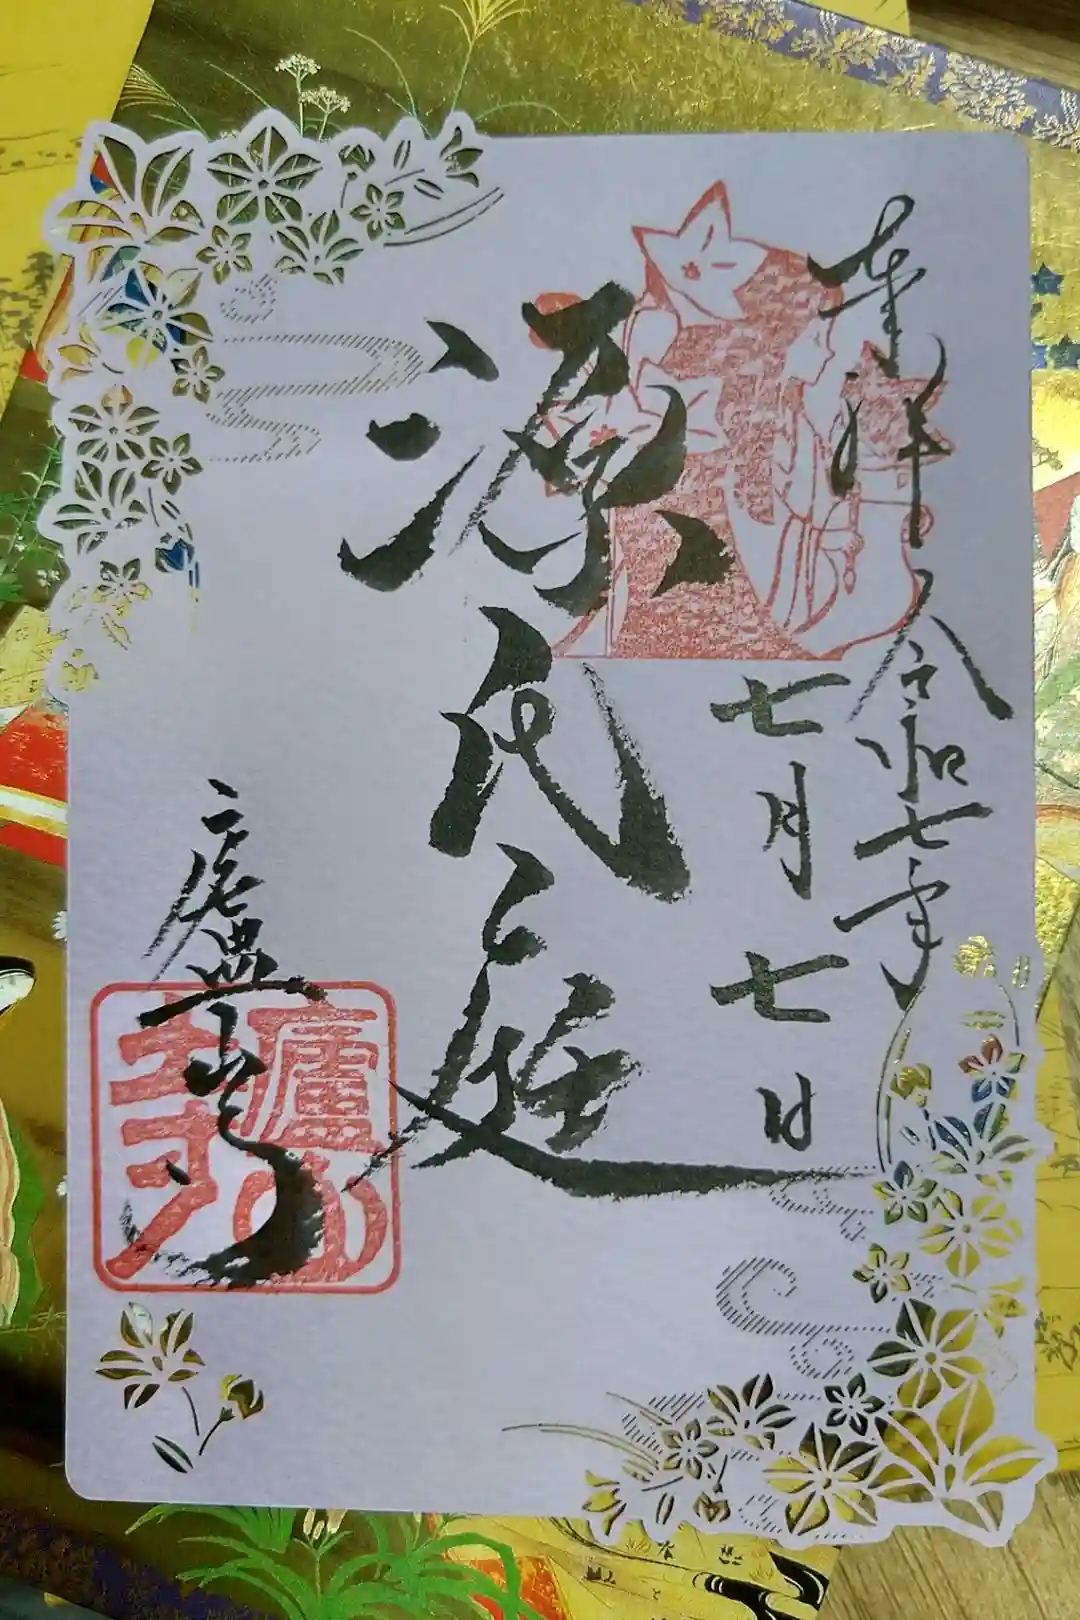 奉拝 令和七年
七月七日
源氏之庭
廬山寺
廬山
寺印